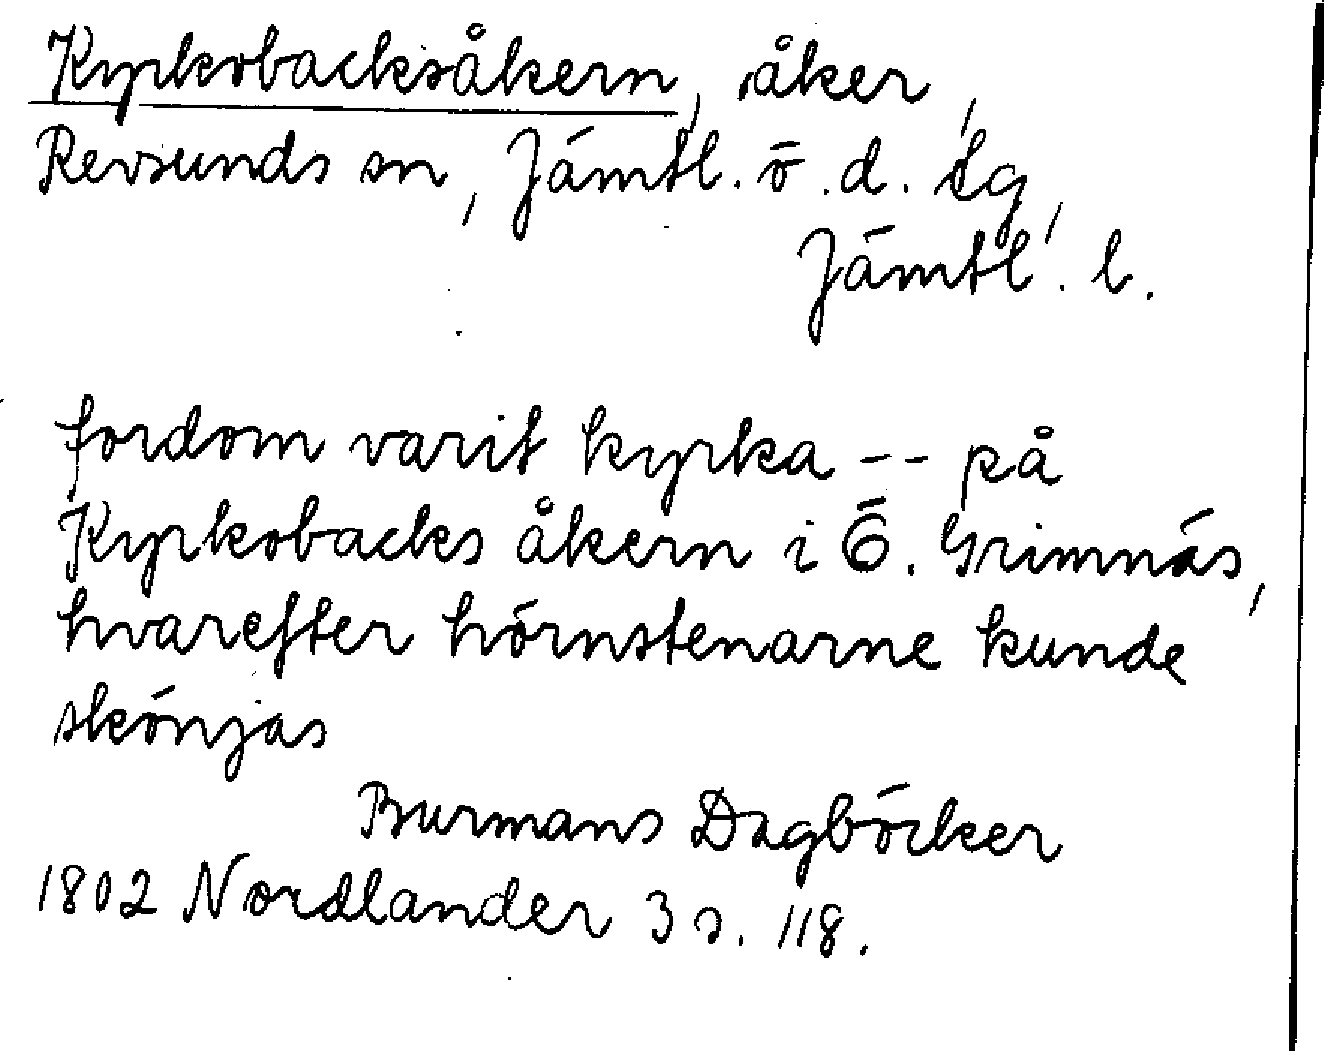 Kyrkobacksåkern, åker,
Revsunds sn, Jämtl. ö. d. tg,
Jämtl. l.
fordom varit kyrka -- på
Kyrkobacks åkern i Ö. Grimnäs,
hvarefter hörnstenarne kunde
skönjas
Burmans Dagböcker
1802 Nordlander 3 s. 118.